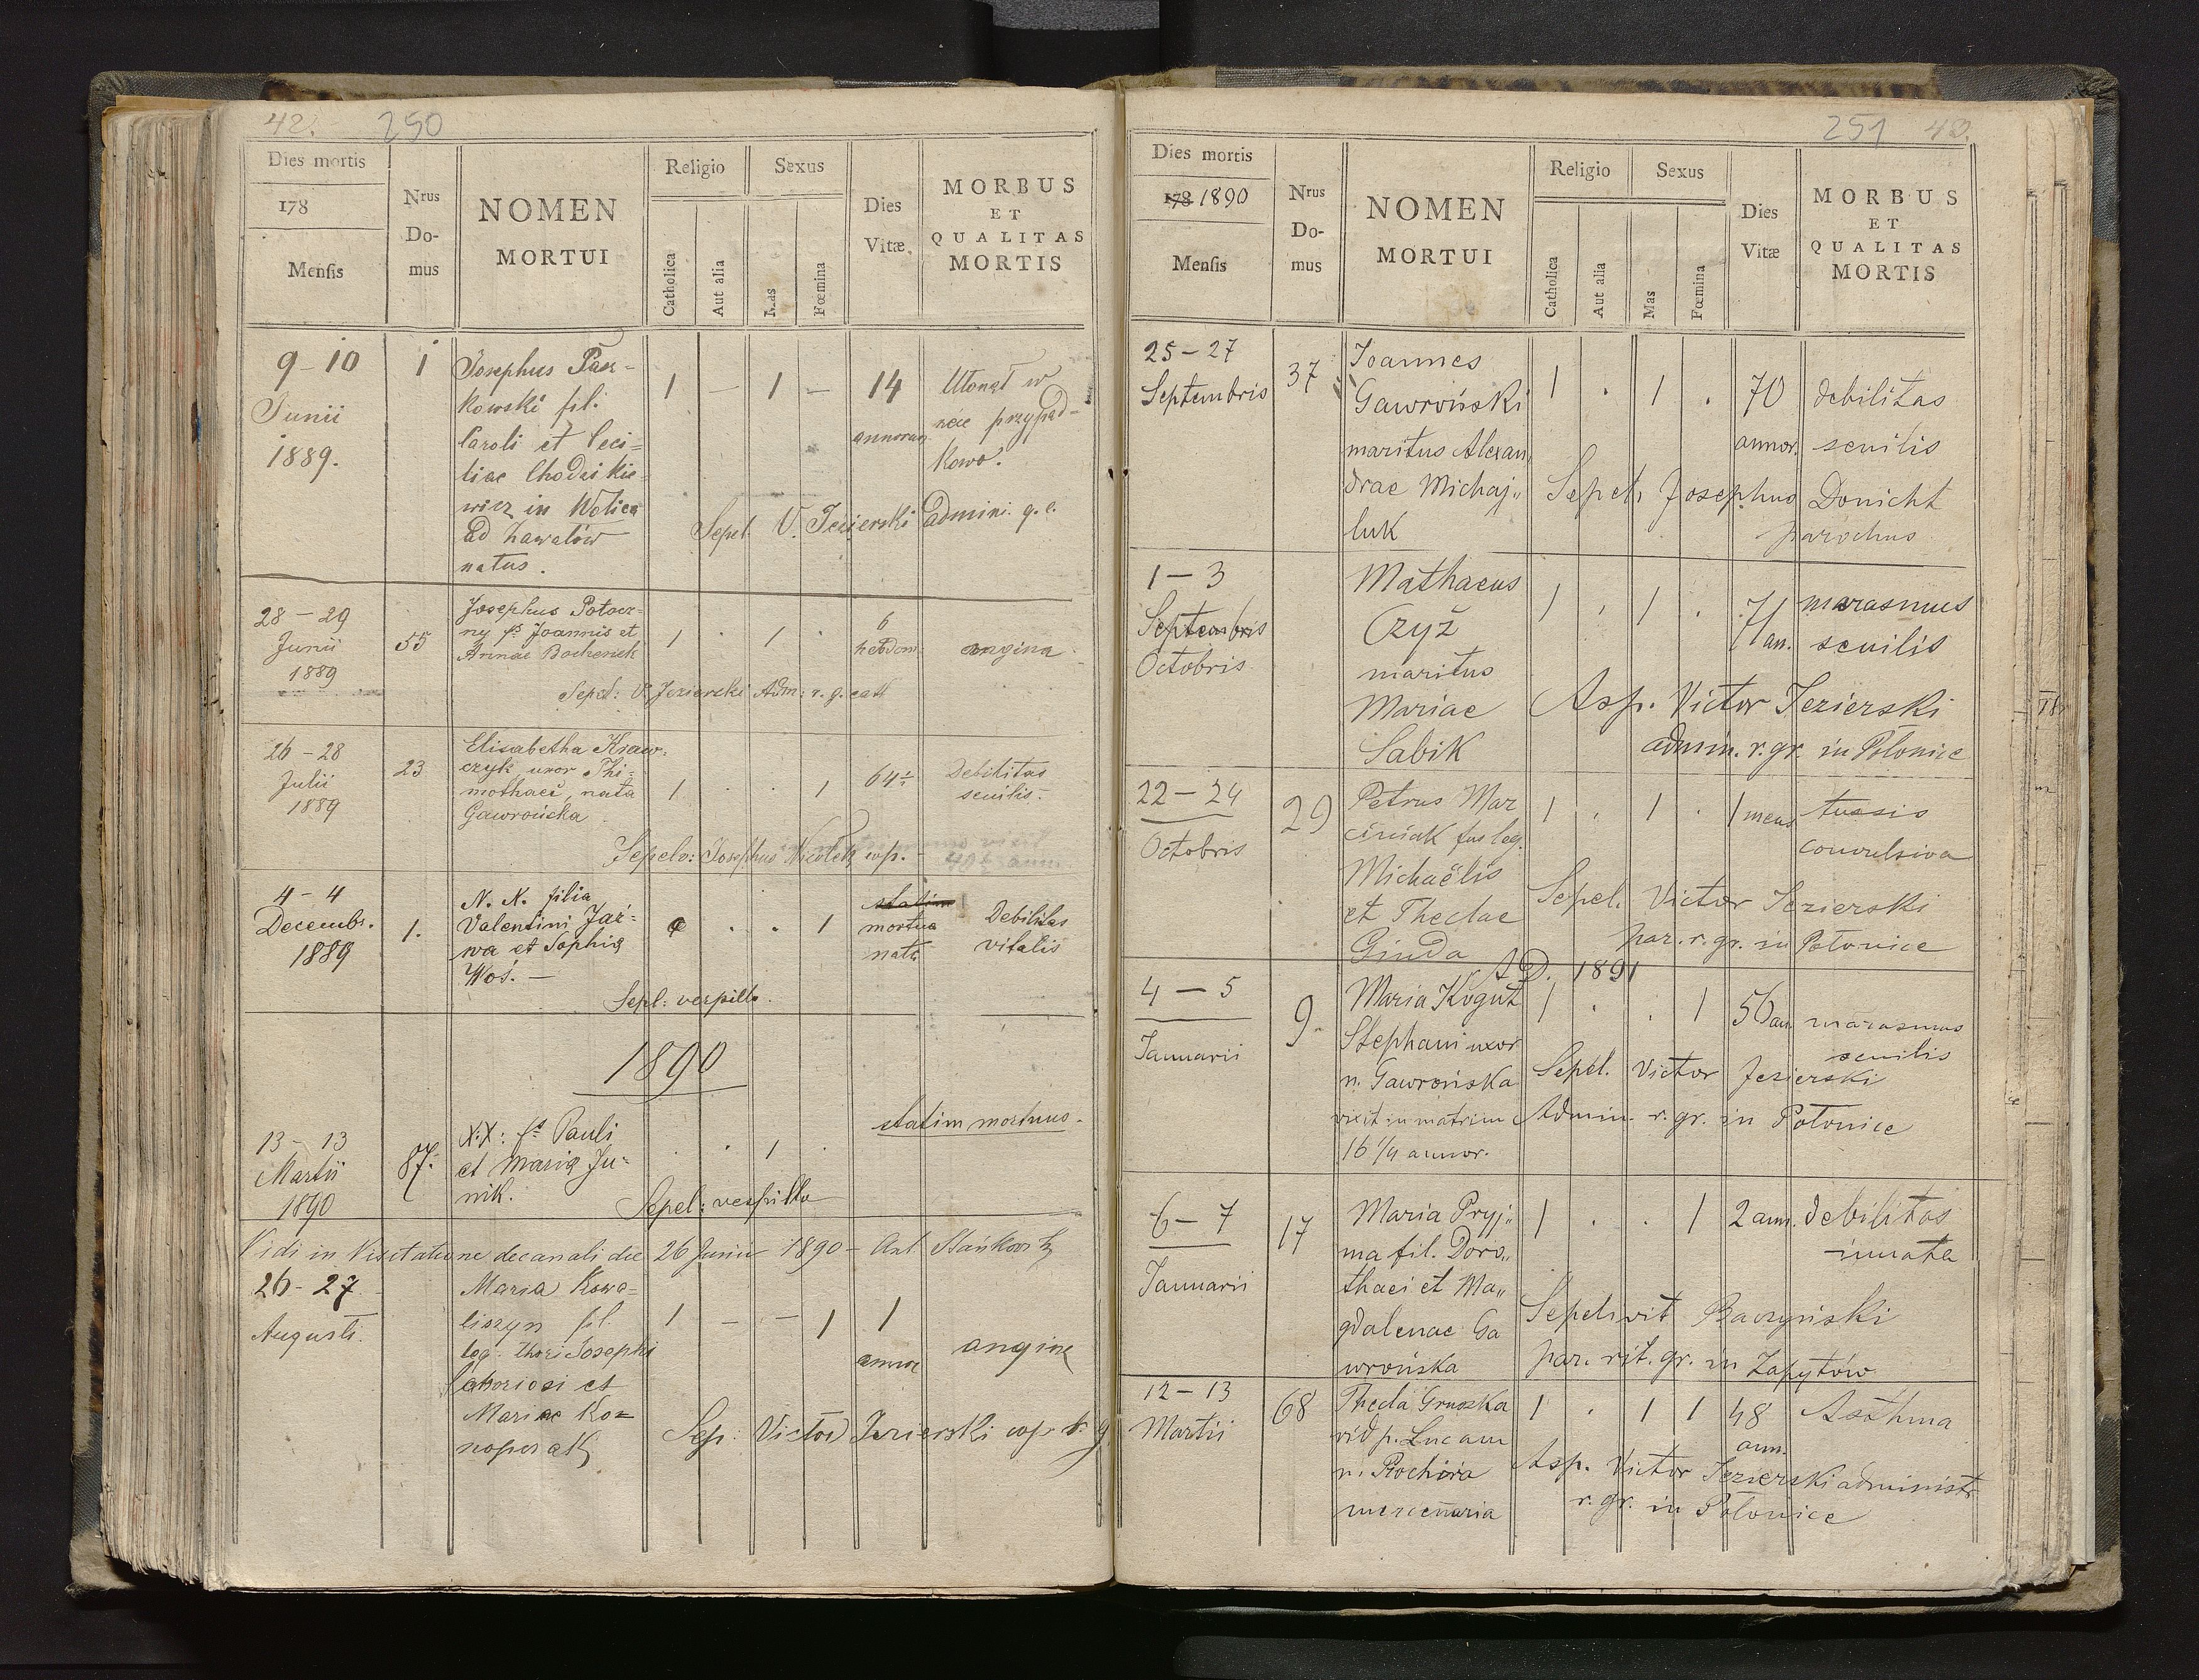 42. 250
Dies mortis
178
Mensis
Nrus Do-mus
NOMEN MORTUI
Religio
Catholica
Aut alia
Sexus
Mas
Fœmina
Dies Vitæ
MORBUS ET QUALITAS MORTIS
9-10 Junii 1889.
1
Josephus Pasz-
kowski fil.
Caroli et Ceci=
liae Chodzikie-
wicz in Wolica
ad Zawalów
natus.
1 - 1 -
14 annorum
Utonął w
rzece przypad-
kowo.
Sepel. V. Jezierski admini. g. c.
28-29 Junii 1889
55
Josephus Potocz-
ny fs Joannis et
Annae Bochenek
1 . 1 .
6 hebdom.
angina
Sepel: V. Jezierski Adm: r. g. cath
26-28 Julii 1889
23
Elisabetha Kraw-
czyk uxor Thi-
mothaei, nata
Gawrońska
1 . . 1
64
Debilitas
senilis.
Sepelv: Josephus
4-4 Decembr. 1889
1.
N. N. filia
Valentini Jaź-
wa et Sophia
Woś. -
. . 1
statim
mortua
nata
Debilitas
vitalis
Sepl: vespillo.
1890
13-13 Martii 1890
87.
N.N: fs Pauli
et Maria Ju-
nik.
. 1 .
statim mortuus.
Sepel: vespillo
Vidi in Visitatione decanali die 26 Junii 1890 - Ant
26-27 Augusti.
Maria Kowa-
liszyn fil.
leg. thori Josephi
laboriosi et
Mariae Ko=
1 - - 1
1
angina
Sep: Victor Jezierski r. g.
251 43.
Dies mortis
178 1890
Mensis
Nrus Do-mus
NOMEN MORTUI
Religio
Catholica
Aut alia
Sexus
Mas
Fœmina
Dies Vitæ
MORBUS ET QUALITAS MORTIS
25-27 Septembris
37
Joannes
Gawroński
maritus Alexan,,
drae Michaj,,
luk
1 . 1 .
70 annor.
debilitas
senilis
Sepel. Josephus Donicht
parochus
1-3 Septembris
Octobris
Mathaeus
Czyż
maritus
Mariae
Sabik
1 . 1 .
71 an.
marasmus
senilis
Asp. Victor Jezierski
admin. r. gr. in Połonice
22-24 Octobris
29
Petrus Mar
ciniak fus leg.
Michaëlis
et Theclae
Ginda
1 . 1 .
1 mens
tussis
convulsiva
Sepel. Victor Jezierski
par. r. gr. in Połonice
A D. 1891
4-5 Januarii
9.
Maria Kogut
Stephani uxor
n. Gawrońska
vixit in matrim
16 1/4 annor.
1 . . 1
56 an
marasmus
senilis
Sepel. Victor Jezierski
Admin. r. gr. in Połonice
6-7 Januarii
17
Maria Pryj,,
ma fil. Doro,,
thaei et Ma,,
gdalenae Ga
wrońska
1 . . 1
2 ann.
debilitas
innata
Sepelivit Baczyński
par. rit. gr. in Zapytów
12-13 Martii
68
Thecla Gruszka
vid p. Lucam
n. Prochira
mercenaria
1 . 1 1
48 ann.
Asthma
Asp. Victor Jezierski administr
r. gr. in Połonice